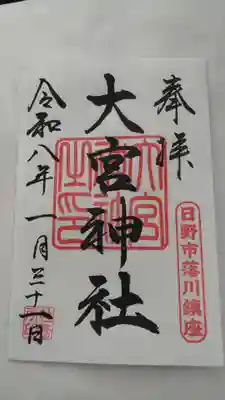 奉拝
日野市落川鎮座
大宮神社
令和八年一月三十一日